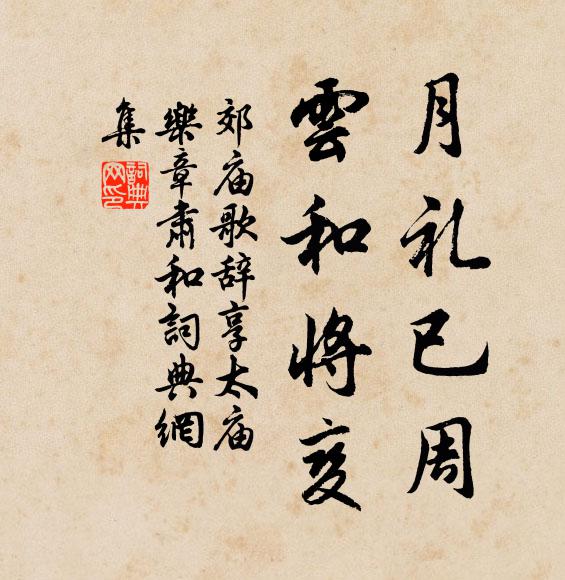 月礼已周
雲和将变
郊庙歌辞享太庙
樂章肃和詞典網
集
詞典网印